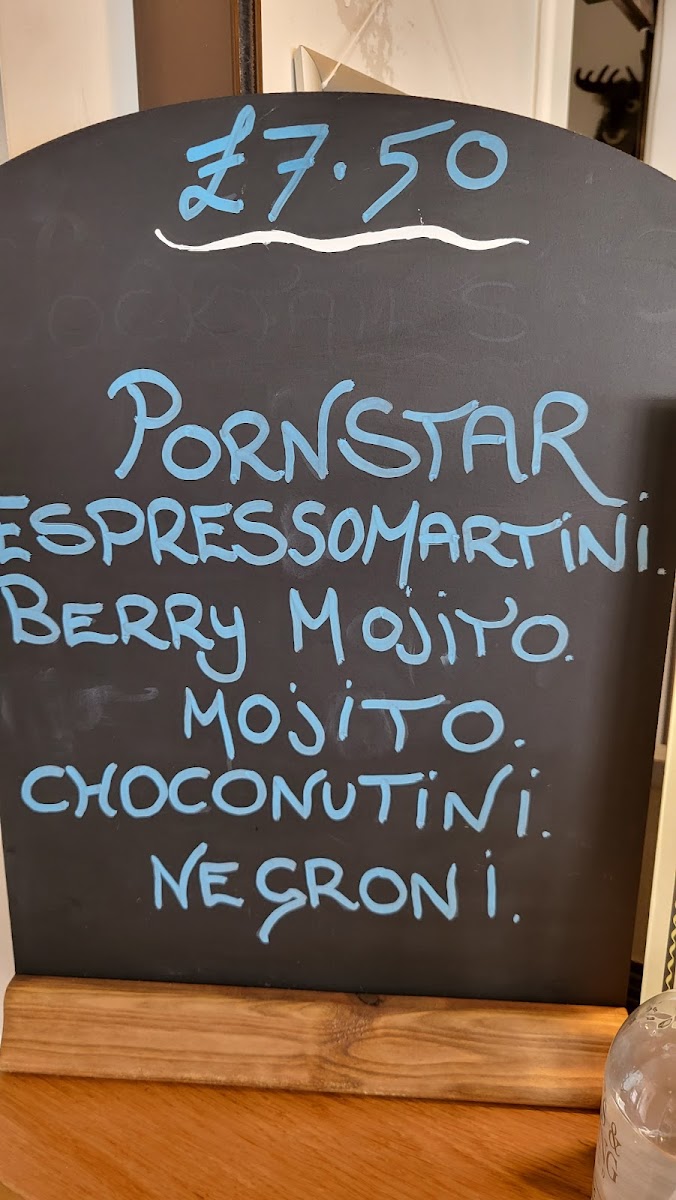 £7.50
COCKTAILS
PORNSTAR
ESPRESSOMARTINI.
BERRY MOJITO.
MOJITO.
CHOCONUTINI.
NEGRONI.